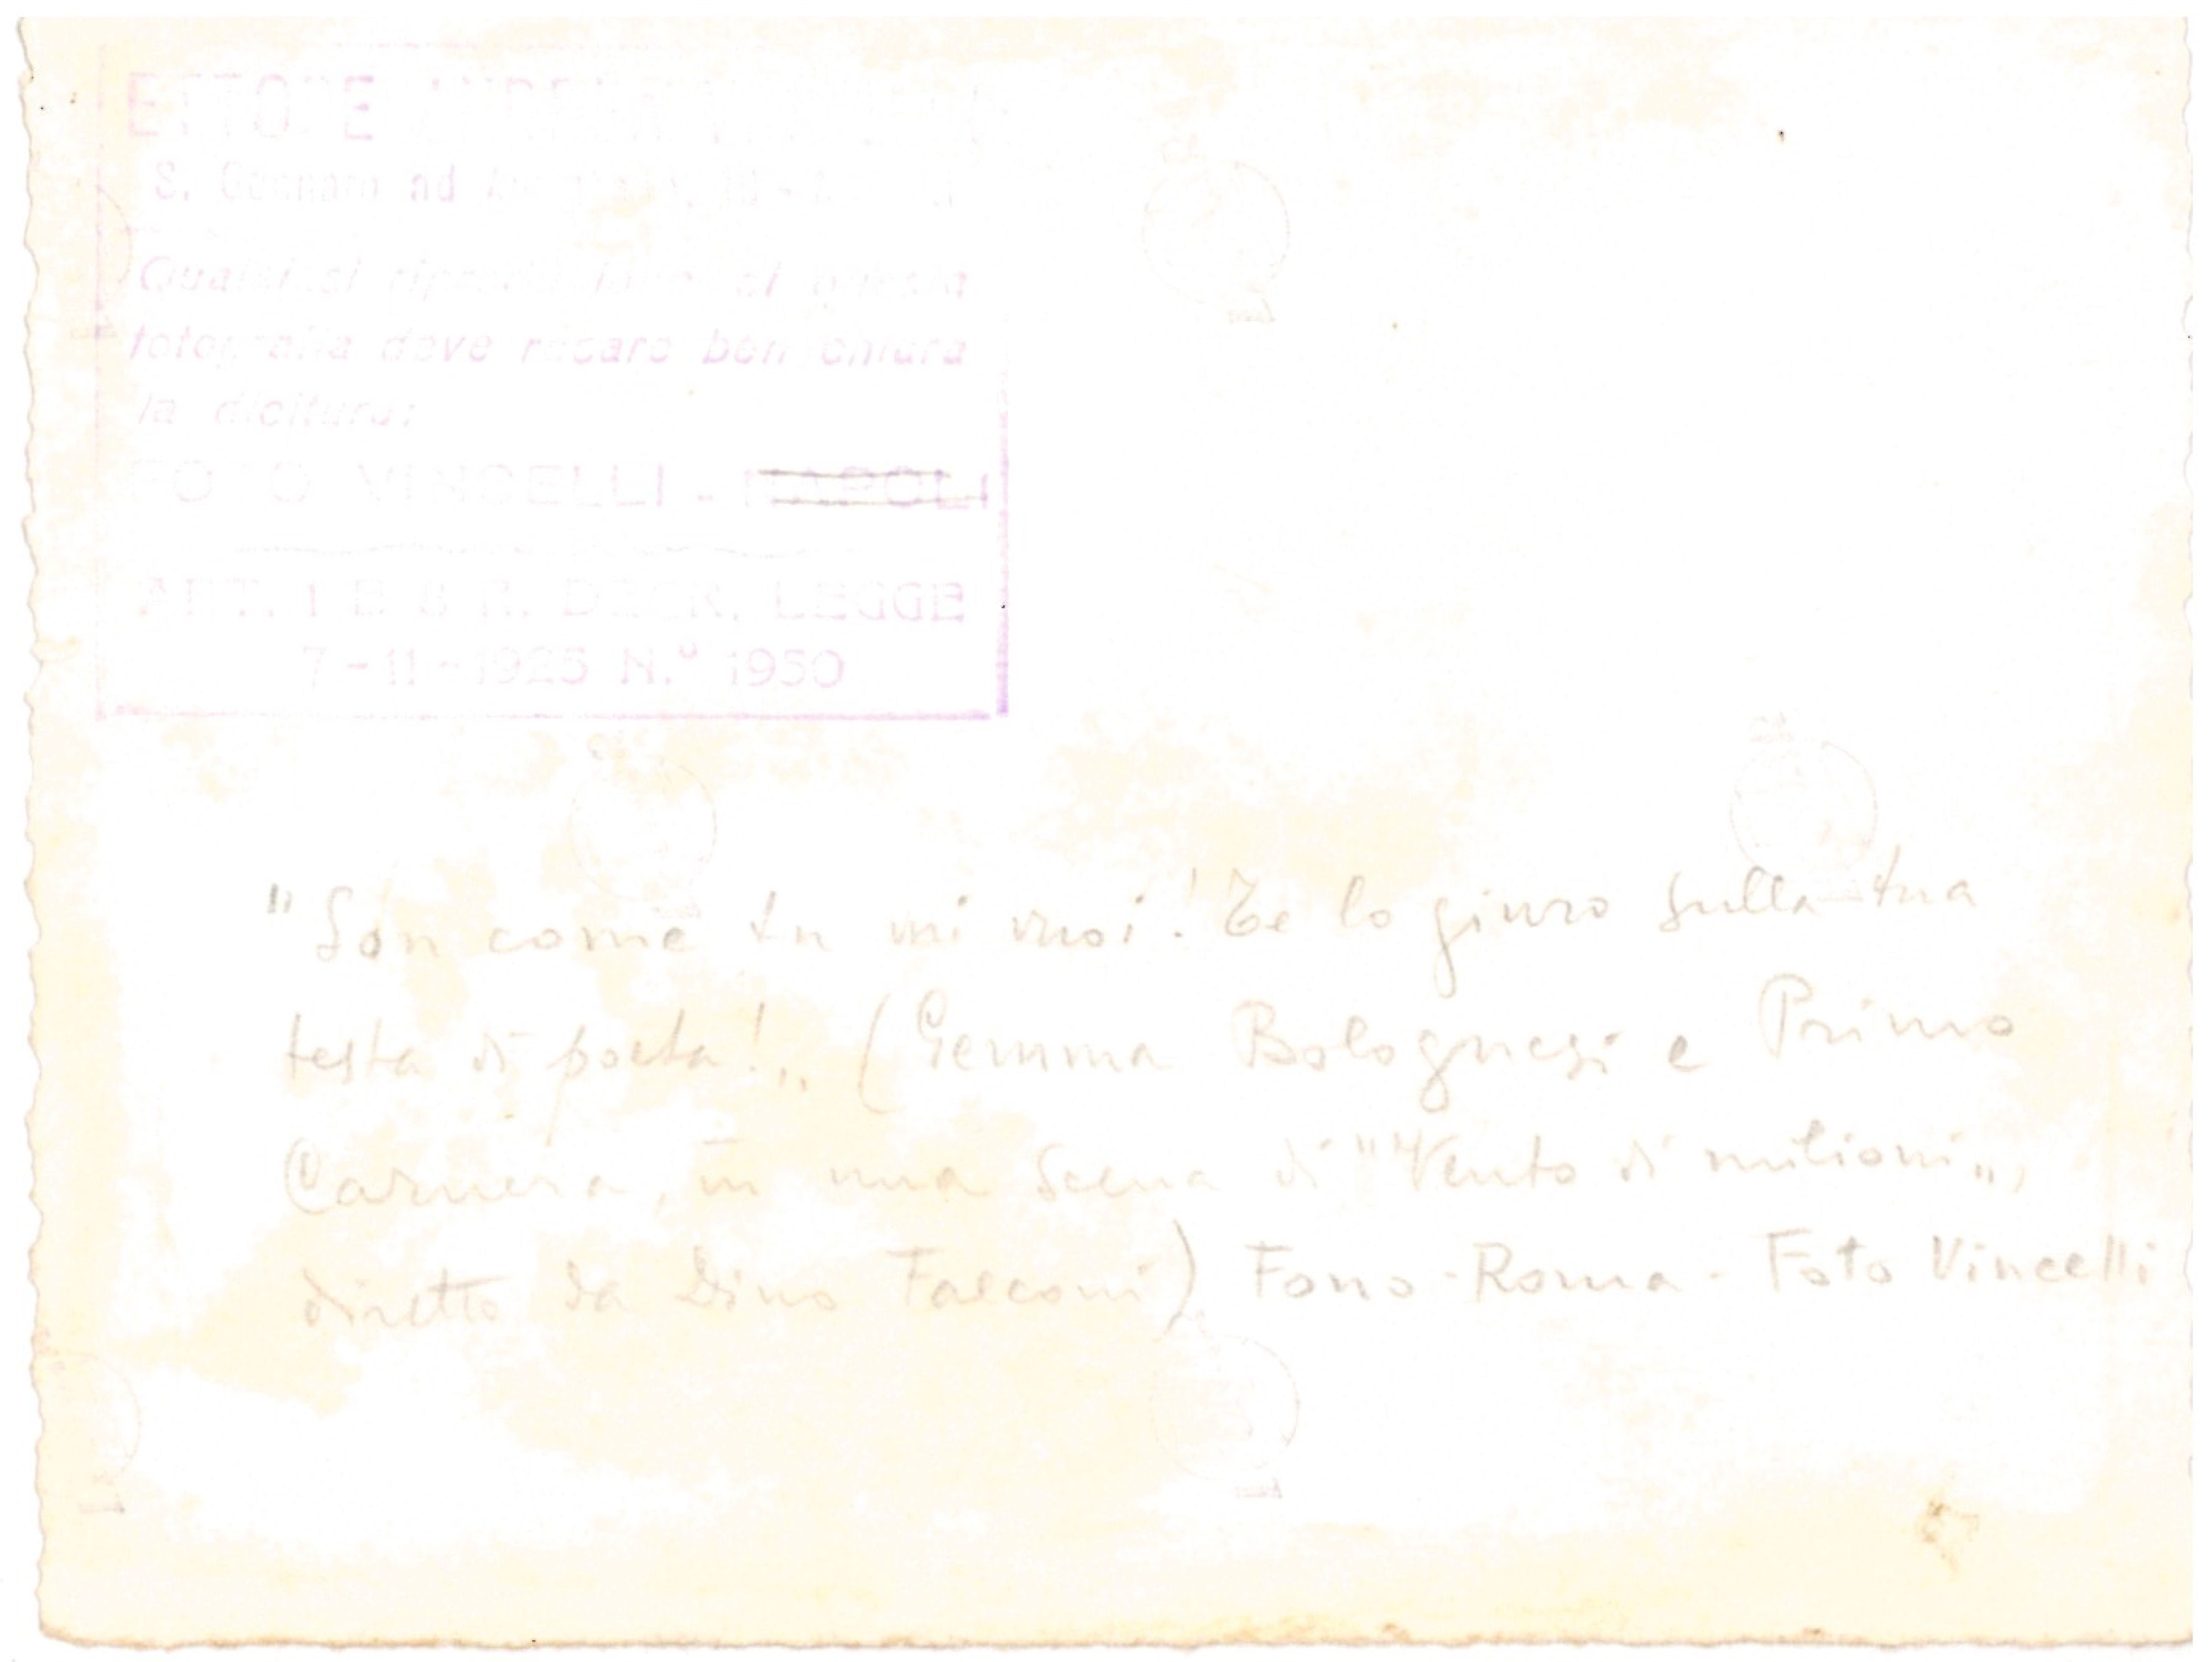 ETTORE
S. Gennaro ad
Qualsiasi riproduzione di questa
fotografia deve recare ben chiara
la dicitura:
FOTO VINCELLI - NAPOLI
ART. 1 E 8 R. DECR. LEGGE
7-11-1925 N.º 1950
"Son come tu mi vuoi! Te lo giuro sulla tua
testa di poeta!„ (Gemma Bolognesi e Primo
Carnera, in una scena di "Vento di milioni„,
diretto da Dino Falconi) Fono-Roma - Foto Vincelli